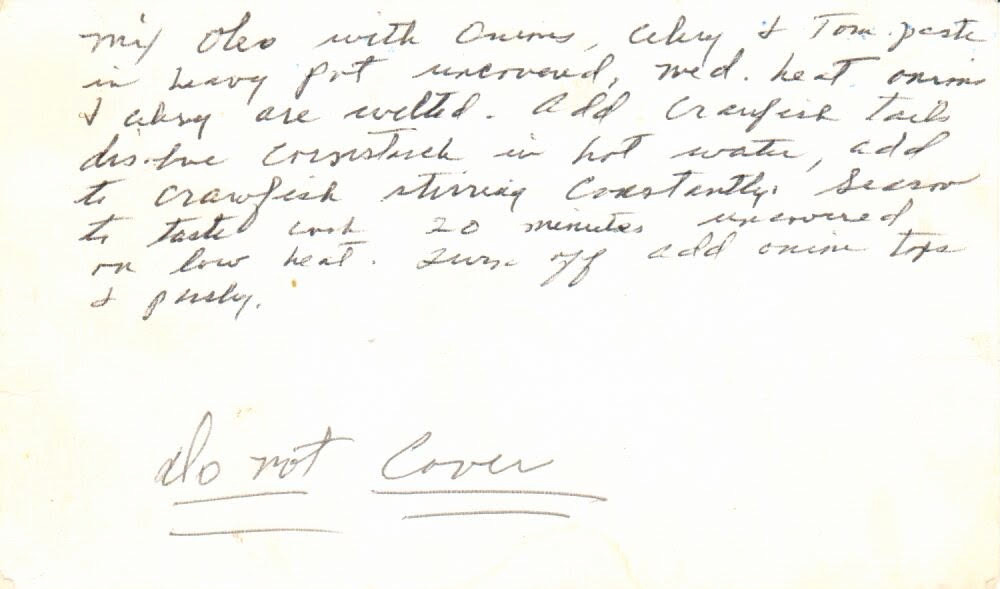 Mix Oleo with Onions, celery & Tom. paste
in heavy pot uncovered, med. heat onions
& celery are wilted. Add Crawfish tails
dissolve cornstarch in hot water, add
to crawfish stirring constantly. Season
to taste cook 20 minutes uncovered
on low heat. Turn off add onion tops
& parsley.
do not Cover